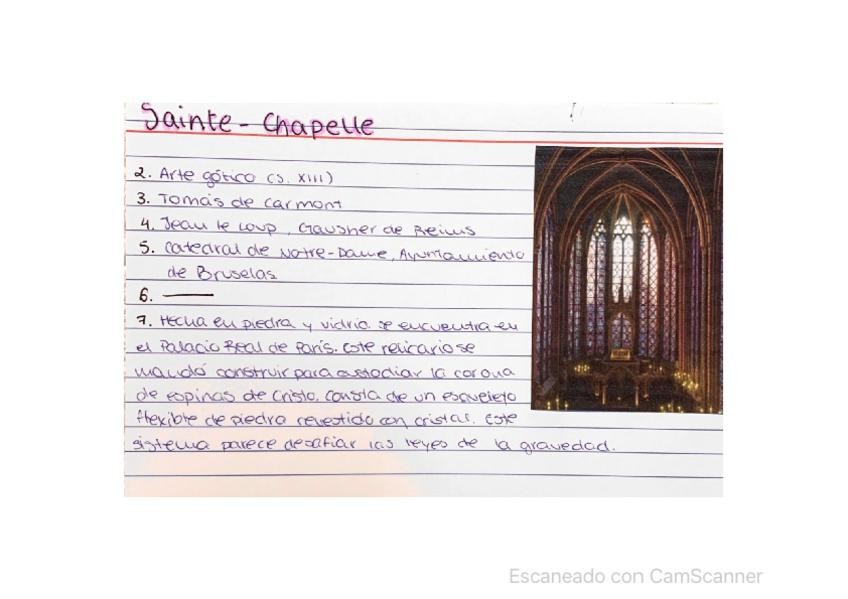 Sainte - Chapelle
2. Arte gótico (s. XIII)
3. Tomás de Carmont
4. Jean le Loup, Gausher de Reims
5. Catedral de Notre-Dame, Ayuntamiento
de Bruselas
6. ———
7. Hecha en piedra y vidrio. se encuentra en
el Palacio Real de París. Este relicario se
mandó construir para custodiar la corona
de espinas de Cristo. consta de un esqueleto
flexible de piedra revestido con cristal. Este
sistema parece desafiar las leyes de la gravedad.
Escaneado con CamScanner